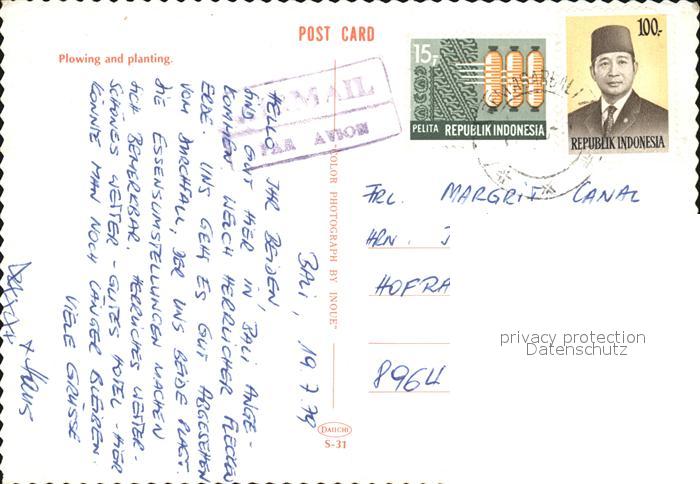 POST CARD
Plowing and planting.
15,-
PELITA REPUBLIK INDONESIA
100,-
REPUBLIK INDONESIA
AIR MAIL
PAR AVION
COLOR PHOTOGRAPH BY INOUE
DAIICHI
S-31
BALI, 19.7.79
HELLO IHR BEIDEN,
SIND GUT HIER IN BALI ANGE-
KOMMEN. WELCH HERRLICHER FLECKEN
ERDE. UNS GEHT ES GUT ABGESEHEN
VOM DURCHFALL, DER UNS BEIDE PLAGT.
DIE ESSENSUMSTELLUNGEN MACHEN
SICH BEMERKBAR. HERRLICHES WETTER-
SCHÖNES WETTER - GUTES HOTEL - HIER
KÖNNTE MAN NOCH LÄNGER BLEIBEN.
VIELE GRÜSSE
+ Hans
FRL. MARGRIT CANAL
HRN. J
HOFRA
8964
privacy protection
Datenschutz